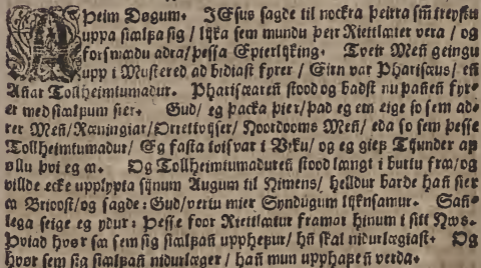 A Þeim Døgum. JEsus sagde til nockra þeirra sm̄ treystu
uppa siælfa sig / lijka sem mundu þeir Riettlæter vera / og
forsmædu adra / þessa Epterlijking. Tveir Men̄ geingu
upp i Mustered ad bidiast fyrer / Eirn var Phariseus / en̄
An̄ar Tollheimtumadur. Phariseæren̄ stood og badst nu þan̄en̄ fyr-
er med siælfum sier. Gud / eg þacka þier / þad eg em eige so sem ad-
rer Men̄ / Ræningiar / Orrettvijser / Noordooms Men̄ / eda so sem þesse
Tollheimtumadur / Eg fasta tvisvar i Viku / og eg gief Tijunder af
øllu þvi eg æ. Og Tollheimtumaduren̄ stood længt i burtu fræ / og
villde ecke upplypta sijnum Augum til Himens / helldur barde han̄ sier
a Brioost / og sagde: Gud / vertu mier Syndugum lijknsamur. San̄-
lega seige eg ydur: Þesse foor Riettlætur framar hinum i sitt Hws.
Þviad hvør sæ sem sig siælfan̄ upphefur / hn̄ skal nidurlægiast. Og
hvør sem sig siælfan̄ nidurlæger / han̄ mun upphafen̄ verda.